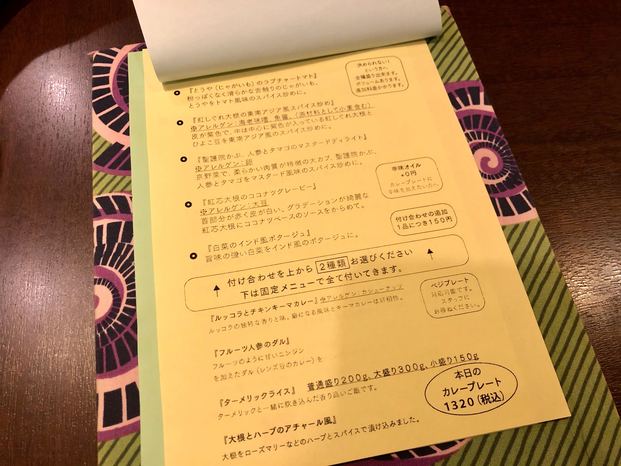 『とうや(じゃがいも)のラプチャートマト』
粉っぽくなく滑らかな舌触りのじゃがいも、
とうやをトマト風味のスパイス炒めに。
決められない!
という方へ
全種盛り出来ます。
ボリュームあります。
追加料金かかります。
『紅しぐれ大根の東南アジア風スパイス炒め』
アレルゲン:海老味噌、魚醤、(原材料として小麦含む)
皮が紫色で、中は中心に紫色が入っている紅しぐれ大根と
ひよこ豆を東南アジア風のスパイス炒めに。
『聖護院かぶ、人参とタマゴのマスタードディライト』
アレルゲン:卵
京野菜で、柔らかい肉質が特徴の大カブ、聖護院かぶ、
人参とタマゴをマスタード風味のスパイス炒めに。
辛味オイル
+0円
カレープレートに
辛味を加えたい方へ。
『紅芯大根のココナツグレービー』
アレルゲン:大豆
首部分が赤く皮が白い、グラデーションが綺麗な
紅芯大根にココナツベースのソースをからめて。
付け合わせの追加
1品につき150円
『白菜のインド風ポタージュ』
旨味の強い白菜をインド風のポタージュに。
↑ 付け合わせを上から 2種類 お選びください
下は固定メニューで全て付いてきます。 ↑
ベジプレート
対応可能です。
スタッフに
お尋ねください。
『ルッコラとチキンキーマカレー』アレルゲン:カシューナッツ
ルッコラの独特な香りと味、癖になる風味とキーマカレーは好相性。
『フルーツ人参のダル』
フルーツのように甘いニンジン
を加えたダル(レンズ豆のカレー)を
『ターメリックライス』 普通盛り200g、大盛り300g、小盛り150g
ターメリックと一緒に炊き込んだ香り良いご飯です。
本日の
カレープレート
1320(税込)
『大根とハーブのアチャール風』
大根をローズマリーなどのハーブとスパイスで漬け込みました。